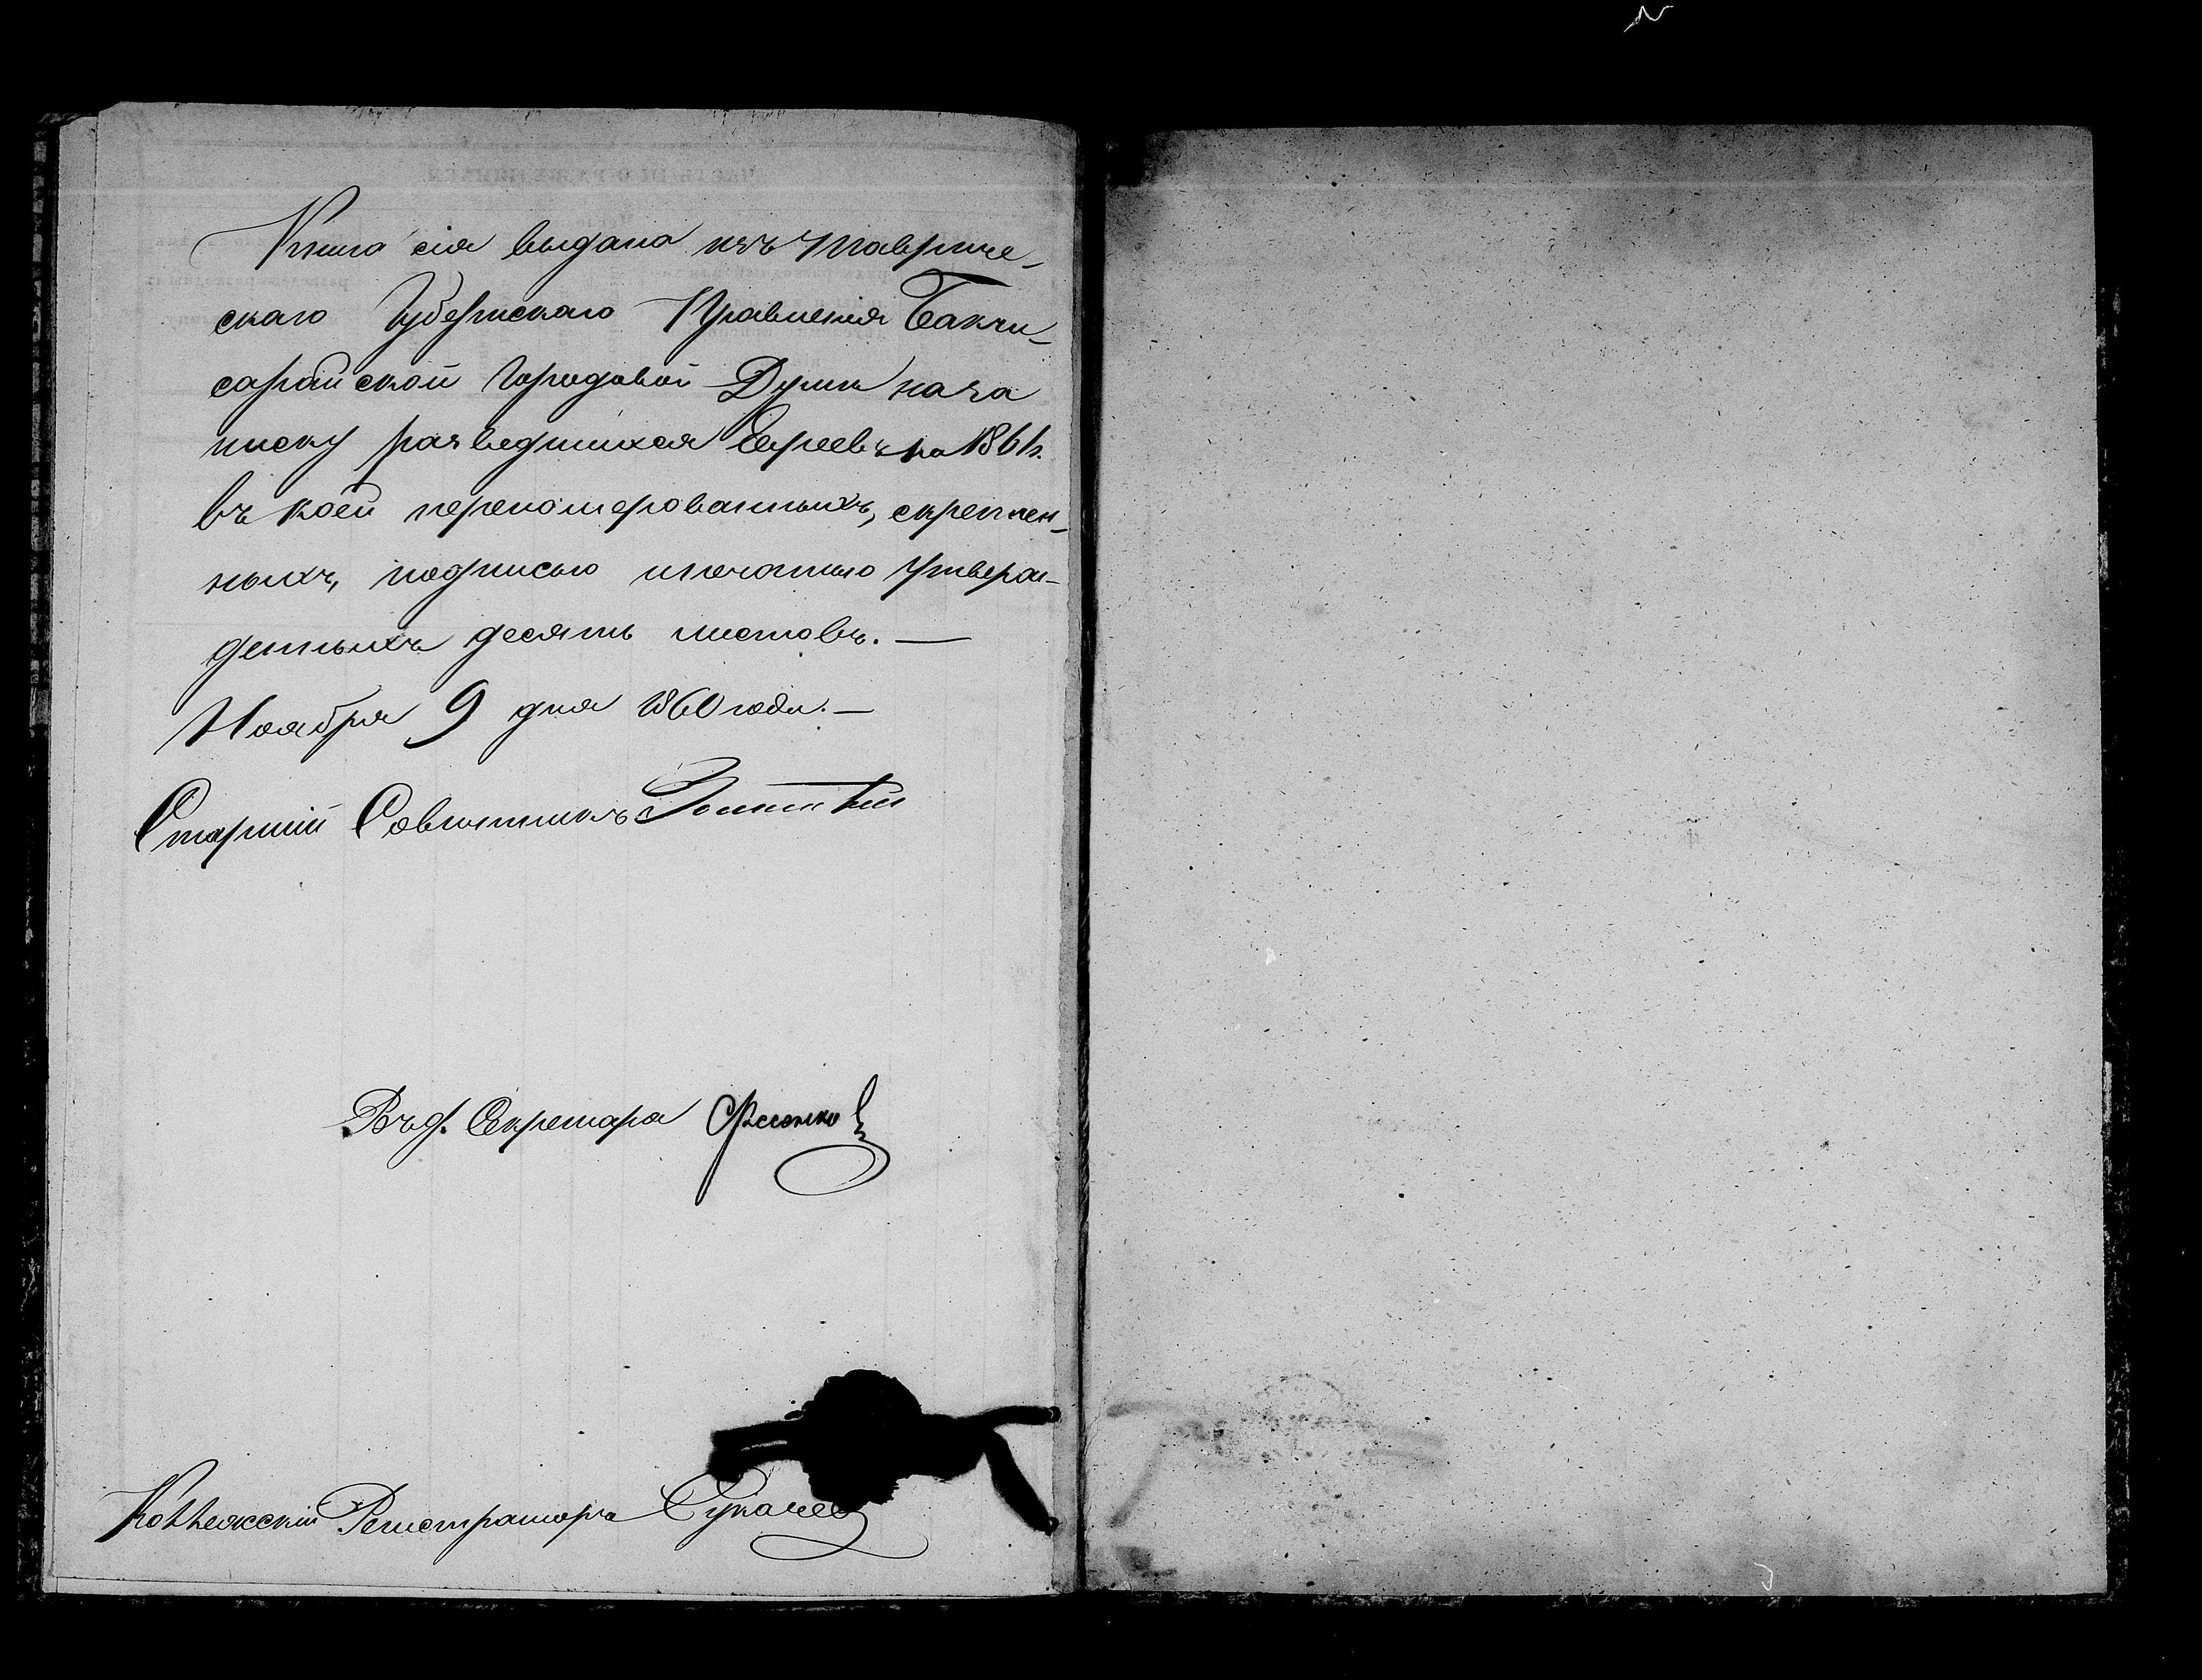 Книга сія выдана изъ Тавриче-
скаго Губернскаго Правленія Бакчи-
сарайской Городовой Думѣ на за
писку разведшихся Евреевъ на 1861 г.
въ коей переномерованныхъ, скреплен-
ныхъ, подписью и печатью утверж-
денныхъ десять листовъ. —
Ноября 9 дня 1860 года. —
Старшій Совѣтникъ
Въ д. Секретаря Фесенко
Коллежскій Регистраторъ Сукачев